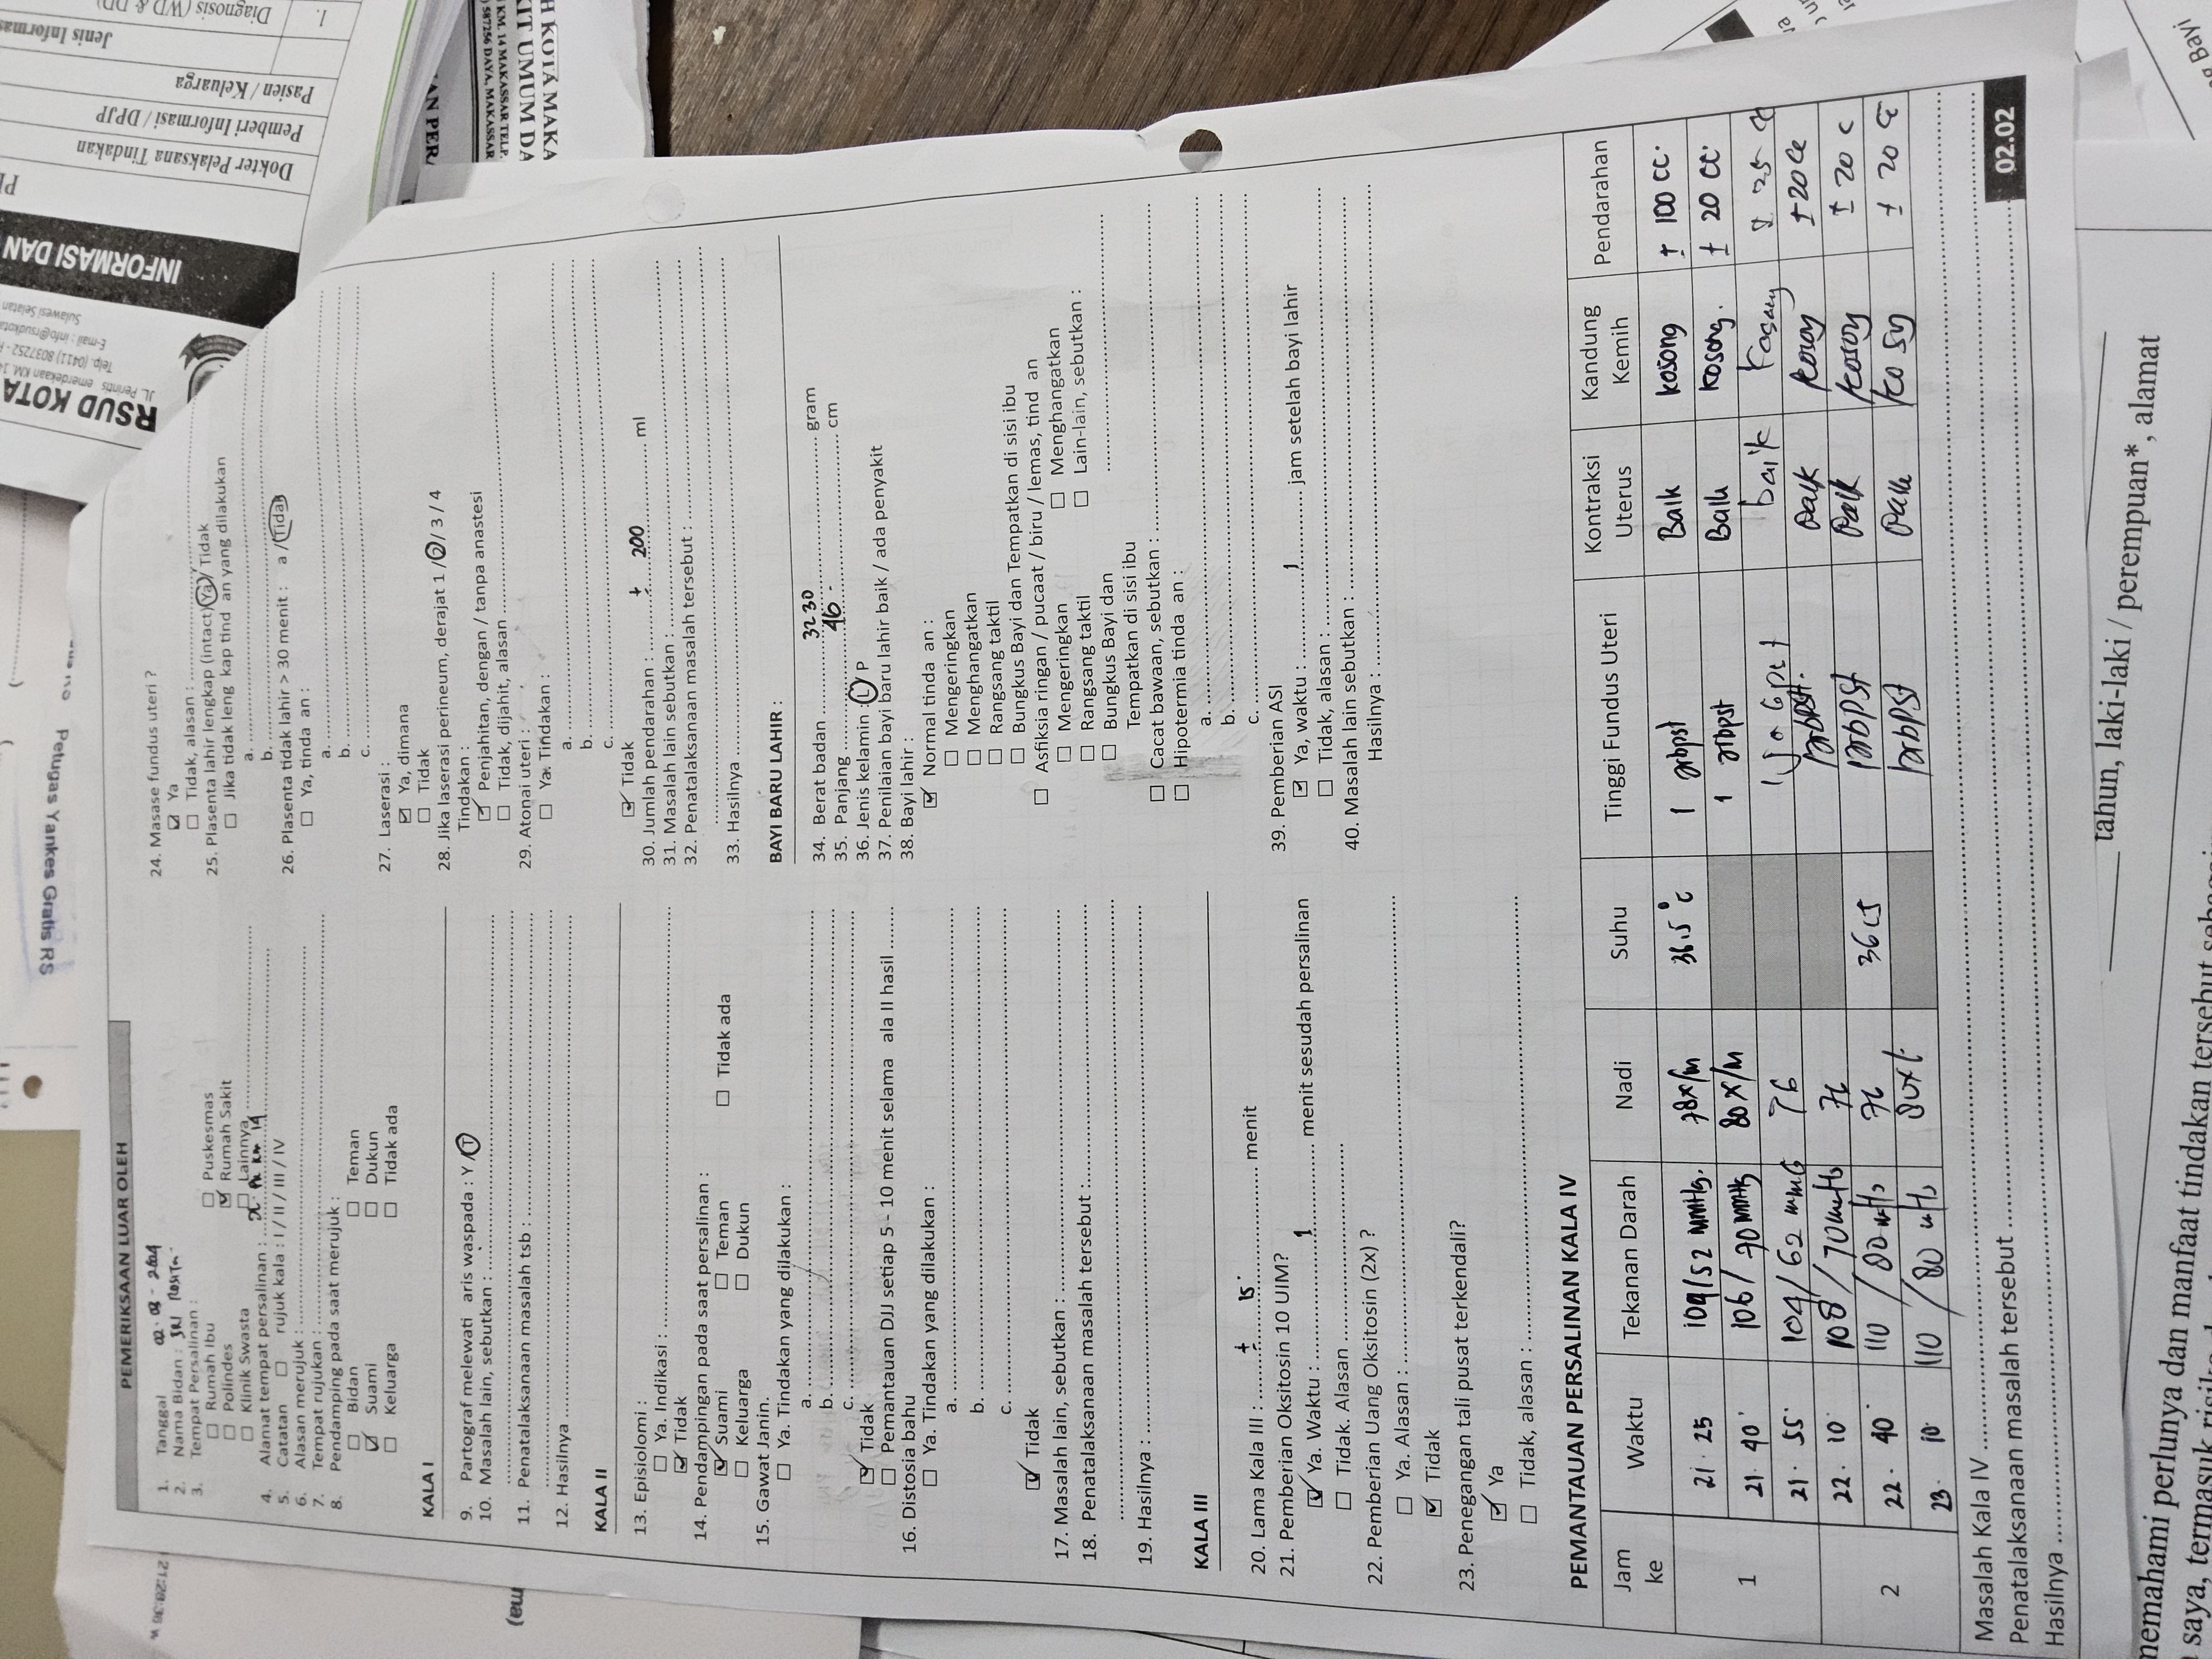 PEMERIKSAAN LUAR OLEH
1. Tanggal
2. Nama Bidan : SRI
3. Tempat Persalinan :
☐ Rumah Ibu ☐ Puskesmas
☐ Polindes ☑ Rumah Sakit
☐ Klinik Swasta ☐ Lainnya
4. Alamat tempat persalinan :
5. Catatan ☐ rujuk kala : I / II / III / IV
6. Alasan merujuk :
7. Tempat rujukan :
8. Pendamping pada saat merujuk :
☐ Bidan ☐ Teman
☑ Suami ☐ Dukun
☐ Keluarga ☐ Tidak ada
KALA I
9. Partograf melewati aris waspada : Y / T
10. Masalah lain, sebutkan :
11. Penatalaksanaan masalah tsb :
12. Hasilnya
KALA II
13. Episiolomi :
☐ Ya. Indikasi :
☑ Tidak
14. Pendampingan pada saat persalinan :
☑ Suami ☐ Teman ☐ Tidak ada
☐ Keluarga ☐ Dukun
15. Gawat Janin.
☐ Ya. Tindakan yang dilakukan :
a.
b.
c.
☑ Tidak
☐ Pemantauan DJJ setiap 5 - 10 menit selama ala II hasil
16. Distosia bahu
☐ Ya. Tindakan yang dilakukan :
a.
b.
c.
☑ Tidak
17. Masalah lain, sebutkan :
18. Penatalaksanaan masalah tersebut :
19. Hasilnya :
KALA III
20. Lama Kala III : ± 15 menit
21. Pemberian Oksitosin 10 UIM?
☑ Ya. Waktu : 1 menit sesudah persalinan
☐ Tidak. Alasan
22. Pemberian Uang Oksitosin (2x) ?
☐ Ya. Alasan :
☑ Tidak
23. Penegangan tali pusat terkendali?
☑ Ya
☐ Tidak, alasan :
24. Masase fundus uteri ?
☑ Ya
☐ Tidak, alasan :
25. Plasenta lahir lengkap (intact) Ya / Tidak
☐ Jika tidak leng kap tind an yang dilakukan
a.
b.
26. Plasenta tidak lahir > 30 menit : a / Tidak
☐ Ya, tinda an :
a.
b.
c.
27. Laserasi :
☑ Ya, dimana
☐ Tidak
28. Jika laserasi perineum, derajat 1 / 2 / 3 / 4
Tindakan :
☑ Penjahitan, dengan / tanpa anastesi
☐ Tidak, dijahit, alasan
29. Atonai uteri :
☐ Ya. Tindakan :
a.
b.
c.
☑ Tidak
30. Jumlah pendarahan : ± 200 ml
31. Masalah lain sebutkan :
32. Penatalaksanaan masalah tersebut :
33. Hasilnya
BAYI BARU LAHIR :
34. Berat badan 3230 gram
35. Panjang 46 cm
36. Jenis kelamin : L / P
37. Penilaian bayi baru lahir baik / ada penyakit
38. Bayi lahir :
☑ Normal tinda an :
☐ Mengeringkan
☐ Menghangatkan
☐ Rangsang taktil
☐ Bungkus Bayi dan Tempatkan di sisi ibu
☐ Asfiksia ringan / pucaat / biru / lemas, tind an
☐ Mengeringkan ☐ Menghangatkan
☐ Rangsang taktil ☐ Lain-lain, sebutkan :
☐ Bungkus Bayi dan
Tempatkan di sisi ibu
☐ Cacat bawaan, sebutkan :
☐ Hipotermia tinda an :
a.
b.
c.
39. Pemberian ASI
☑ Ya, waktu : 1 jam setelah bayi lahir
☐ Tidak, alasan :
40. Masalah lain sebutkan :
Hasilnya :
PEMANTAUAN PERSALINAN KALA IV
Jam ke Waktu Tekanan Darah Nadi Suhu Tinggi Fundus Uteri Kontraksi Uterus Kandung Kemih Pendarahan
1 21.25 109/52 mmHg. 78x/m 36.5°c 1 Jrbpst Baik kosong ± 100 cc.
21.40 106/70 mmHg 80x/m 1 Jrbpst Baik kosong. ± 20 cc.
21.55 104/62 76 baik kosong 25
22.10 108/70 baik kosong ± 20 cc
2 22.40 110/80 baik kosong ± 20 c
23.10 110/80 80x/ ± 20 c
Masalah Kala IV
Penatalaksanaan masalah tersebut
Hasilnya
02.02
RSUD KOTA
Telp. (0411) 8037252
Sulawesi Selatan
INFORMASI DAN
Dokter Pelaksana Tindakan
Pemberi Informasi / DPJP
Pasien / Keluarga
Jenis Informas
1. Diagnosis (WD & DD)
H KOTA MAKA
IT UMUM DA
KM. 14 MAKASSAR TELP.
587256 DAYA, MAKASSAR
AN PER
Petugas Yankes Gratis RS
tahun, laki-laki / perempuan*, alamat
memahami perlunya dan manfaat tindakan tersebut sebagai
saya, termasuk risiko
Bayi